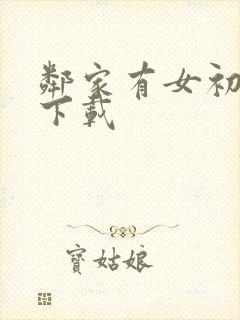 鄰家有女初
下載
寶姑娘